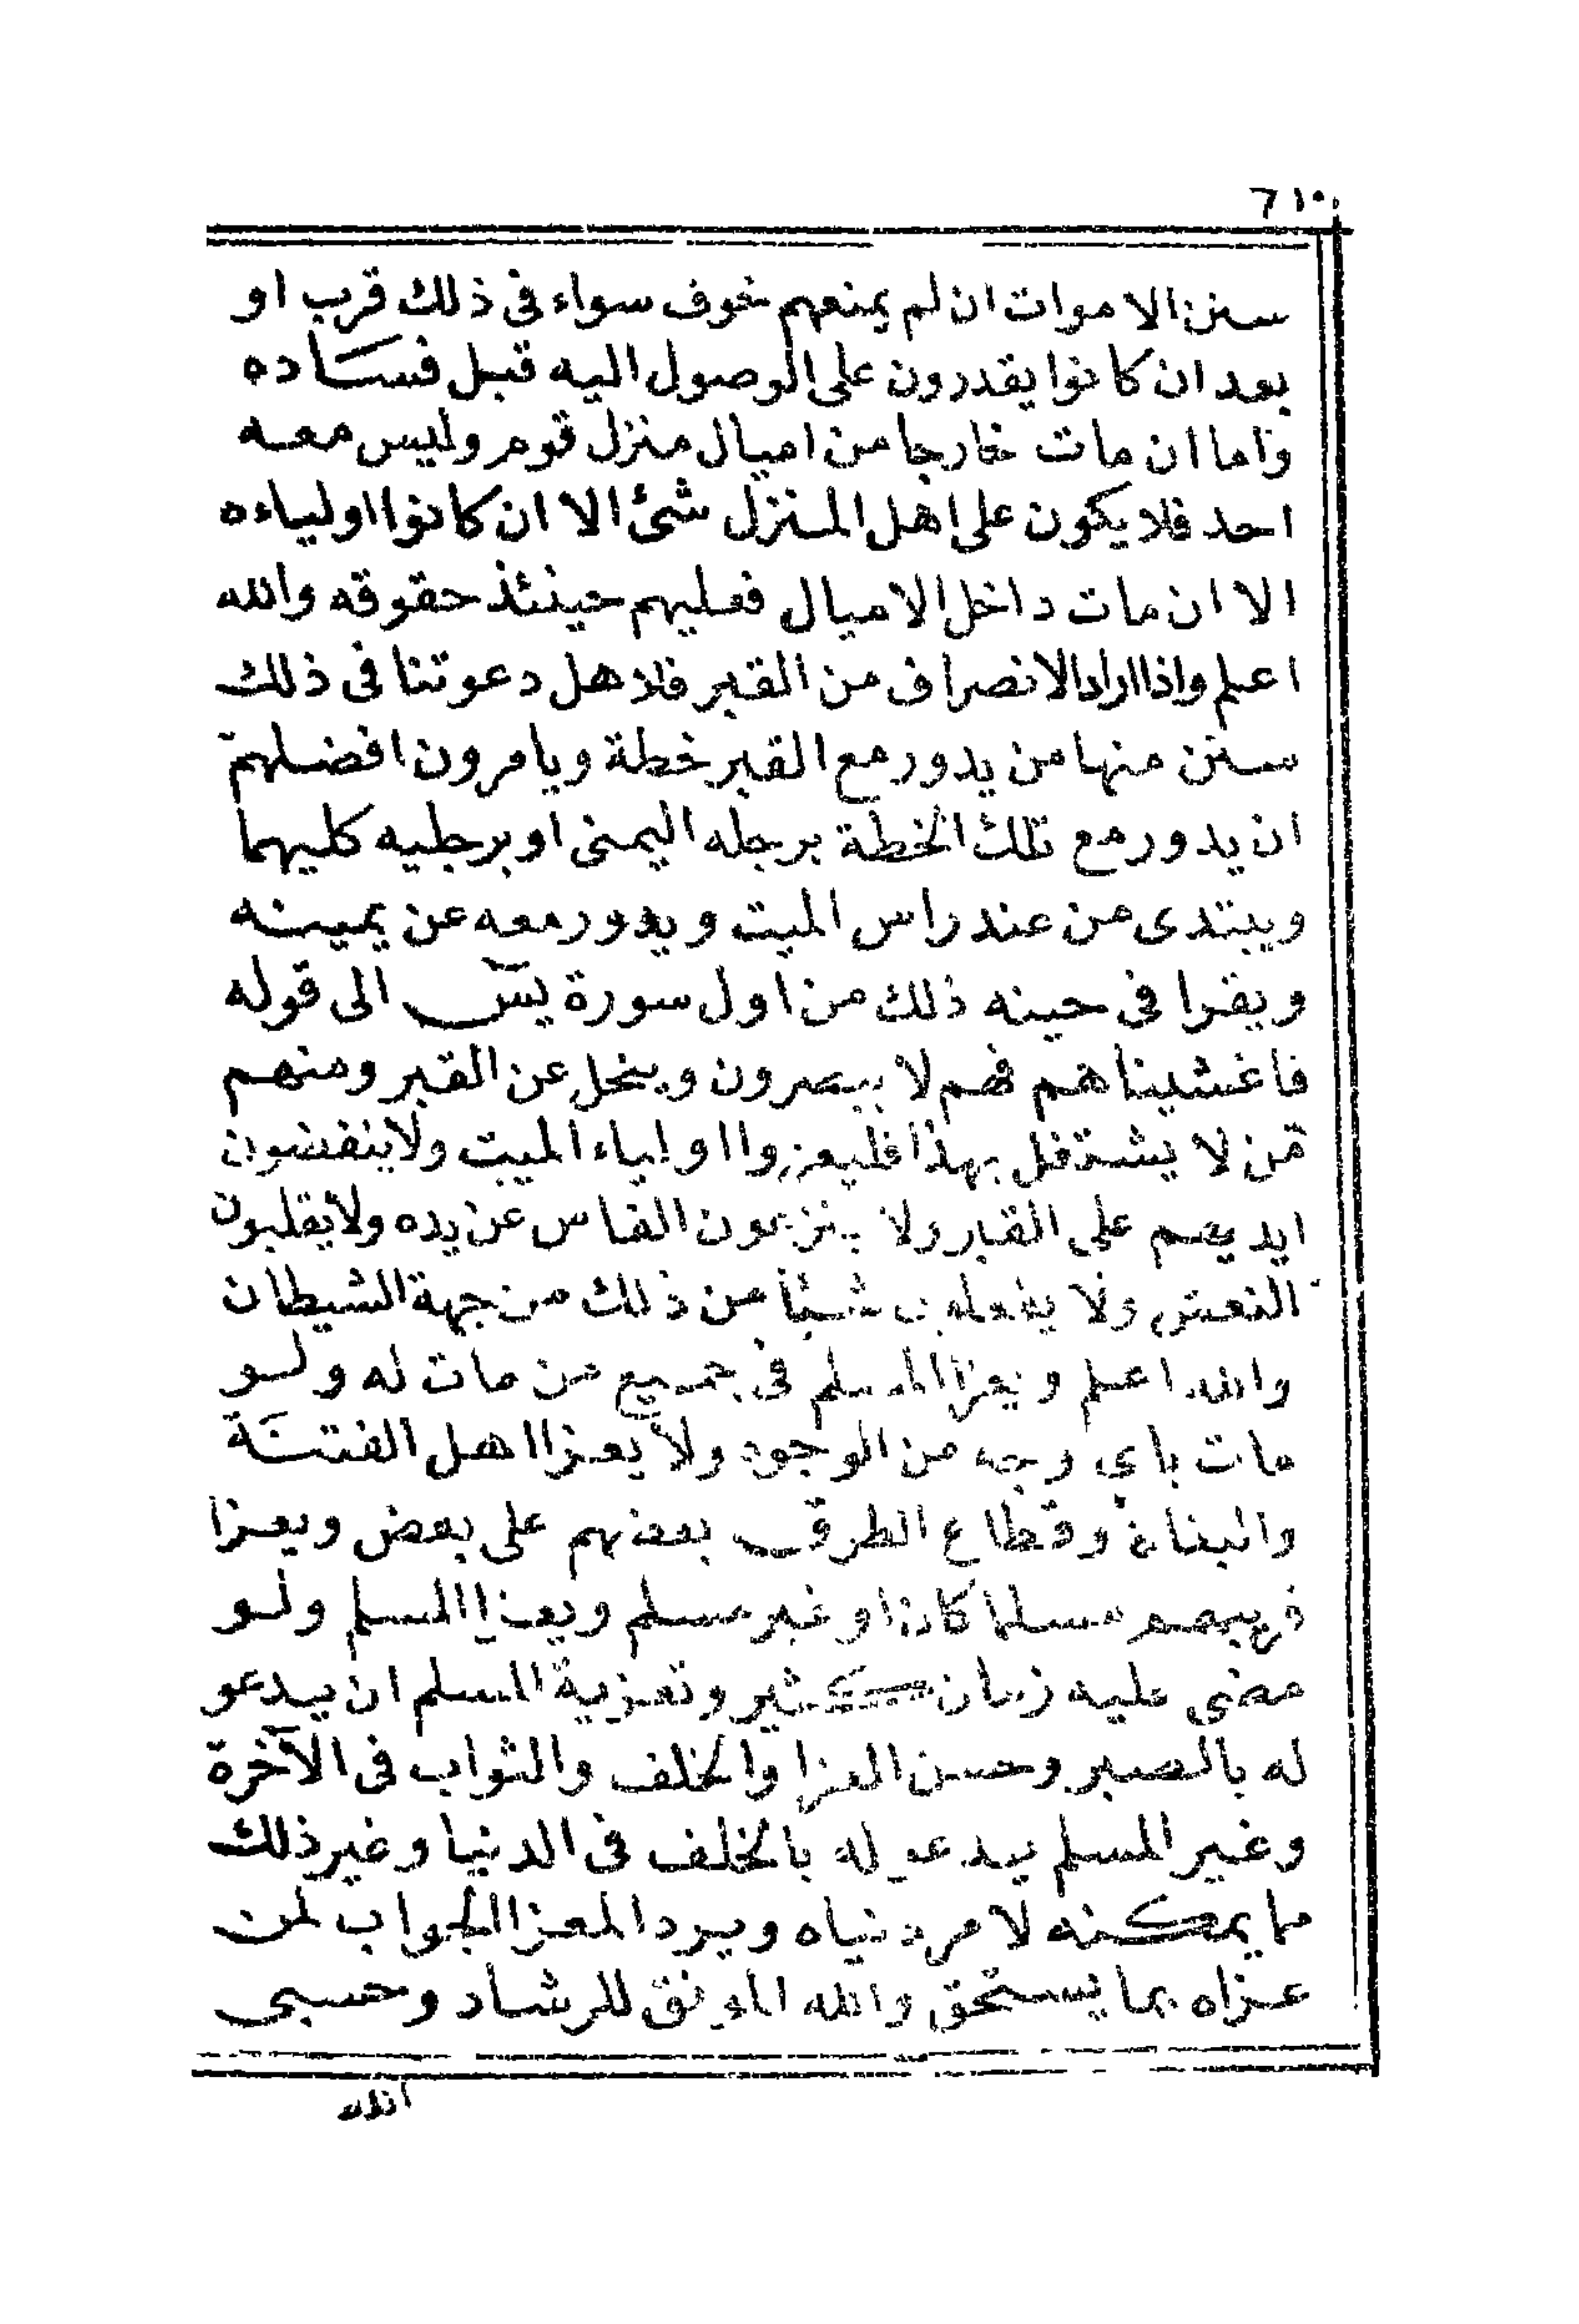 ٦١٠
سنن الاموات ان لم يمنعهم خوف سواء فى ذلك قرب او
بعد ان كانوا يقدرون على الوصول اليه قبل فساده
واما ان مات خارجا من اميال منزل قوم وليس معه
احد فلا يكون على اهل المنزل شئ الا ان كانوا اولياءه
الا ان مات داخل الاميال فعليهم حينئذ حقوقه والله
اعلم واذا اراد الانصراف من القبر فلاهل دعوتنا فى ذلك
سنن منها من يدور مع القبر خطة ويامرون افضلهم
ان يدور مع تلك الخطة برجله اليمنى او برجليه كليهما
ويبتدى من عند راس الميت ويدور معه عن يمينه
ويقرا فى حينه ذلك من اول سورة يس الى قوله
فاغشيناهم فهم لا يبصرون وينحل عن القبر ومنهم
من لا يشتغل بهذا فليعزوا اولياء الميت ولا ينفضون
ايديهم على القبر ولا ينزعون الفاس عن يده ولا يقلبون
النعش ولا يفعلون شيئا من ذلك من جهة الشيطان
والله اعلم ويعزا المسلم فى جميع من مات له ولو
مات باى وجه من الوجوه ولا يعزا اهل الفتنة
والبغاة وقطاع الطرق بعضهم على بعض ويعزا
قريبهم مسلما كان او غير مسلم ويعزا المسلم ولو
مضى عليه زمان كثير وتعزية المسلم ان يدعو
له بالصبر وحسن العزا والخلف والثواب فى الآخرة
وغير المسلم يدعو له بالخلف فى الدنيا وغير ذلك
مما يمكنه لامر دنياه ويرد المعزا الجواب لمن
عزاه بما يستحق والله الموفق للرشاد وحسبى
الله